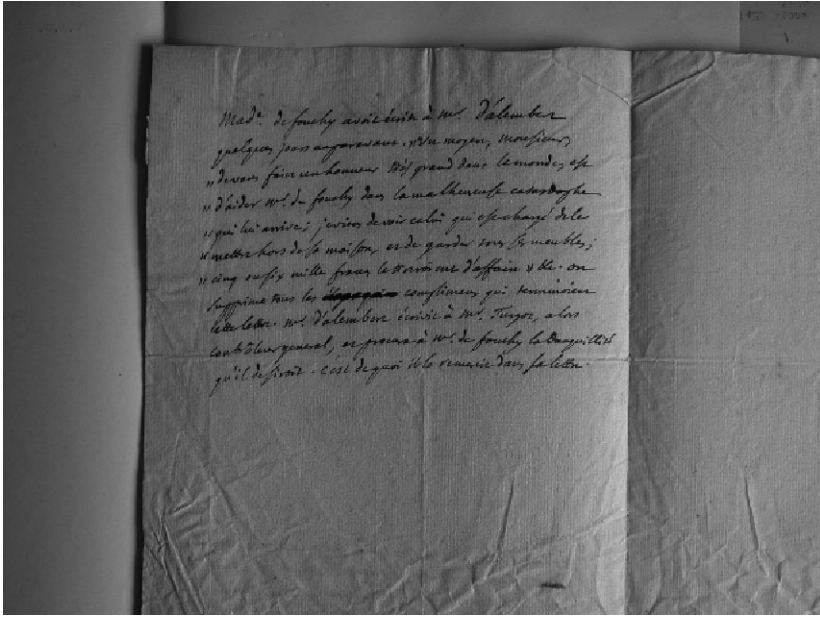 Made. de fouchy avoit écrit à Mr. D'alembert
quelques jours auparavant. "Un moyen, monsieur,
" de vous faire un honneur très grand dans le monde, est
" d'aider Mr. de fouchy dans la malheureuse catastrophe
" qui lui arrive; je viens de voir celui qui est chargé de le
" mettre hors de sa maison, et de garder tous ses meubles;
" cinq ou six mille francs le tireroient d'affaire " &c. on
supprime tous les complimens qui terminoient
cette lettre. Mr. D'alembert écrivit à Mr. Turgot, alors
contrôleur général, et procura à Mr. de fouchy la tranquillité
qu'il desiroit. C'est de quoi il le remercie dans sa lettre.